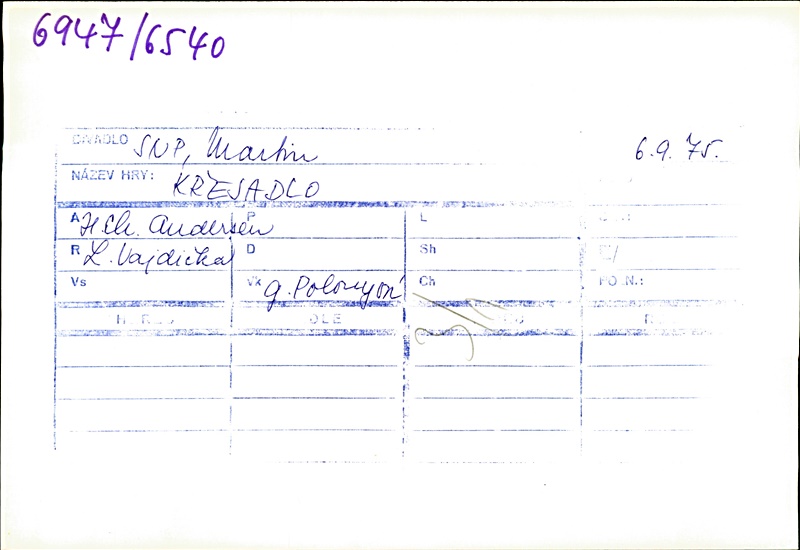 6947/6540
DIVADLO SNP, Martin 6.9.75.
NÁZEV HRY: KŘESADLO
A H.Ch. Andersen P L
R L. Vajdička D Sh
Vs Vk G. Polonyová Ch